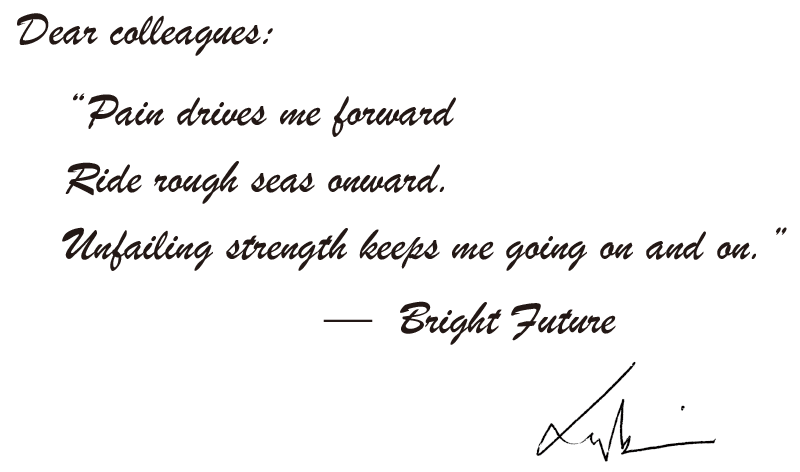 Dear colleagues:
“Pain drives me forward
Ride rough seas onward.
Unfailing strength keeps me going on and on.”
— Bright Future